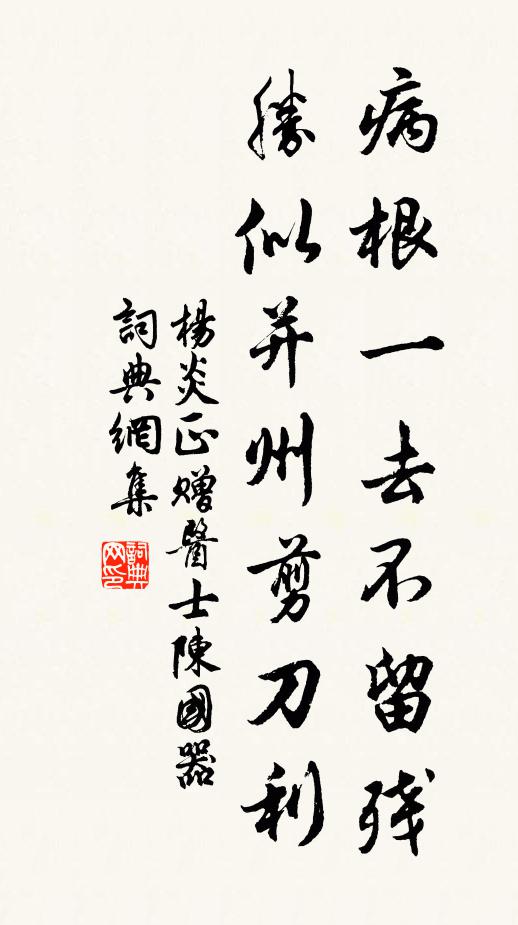 病根一去不留残
勝似并州剪刀利
楊炎正贈醫士陳國器
詞典網集
詞典
网印